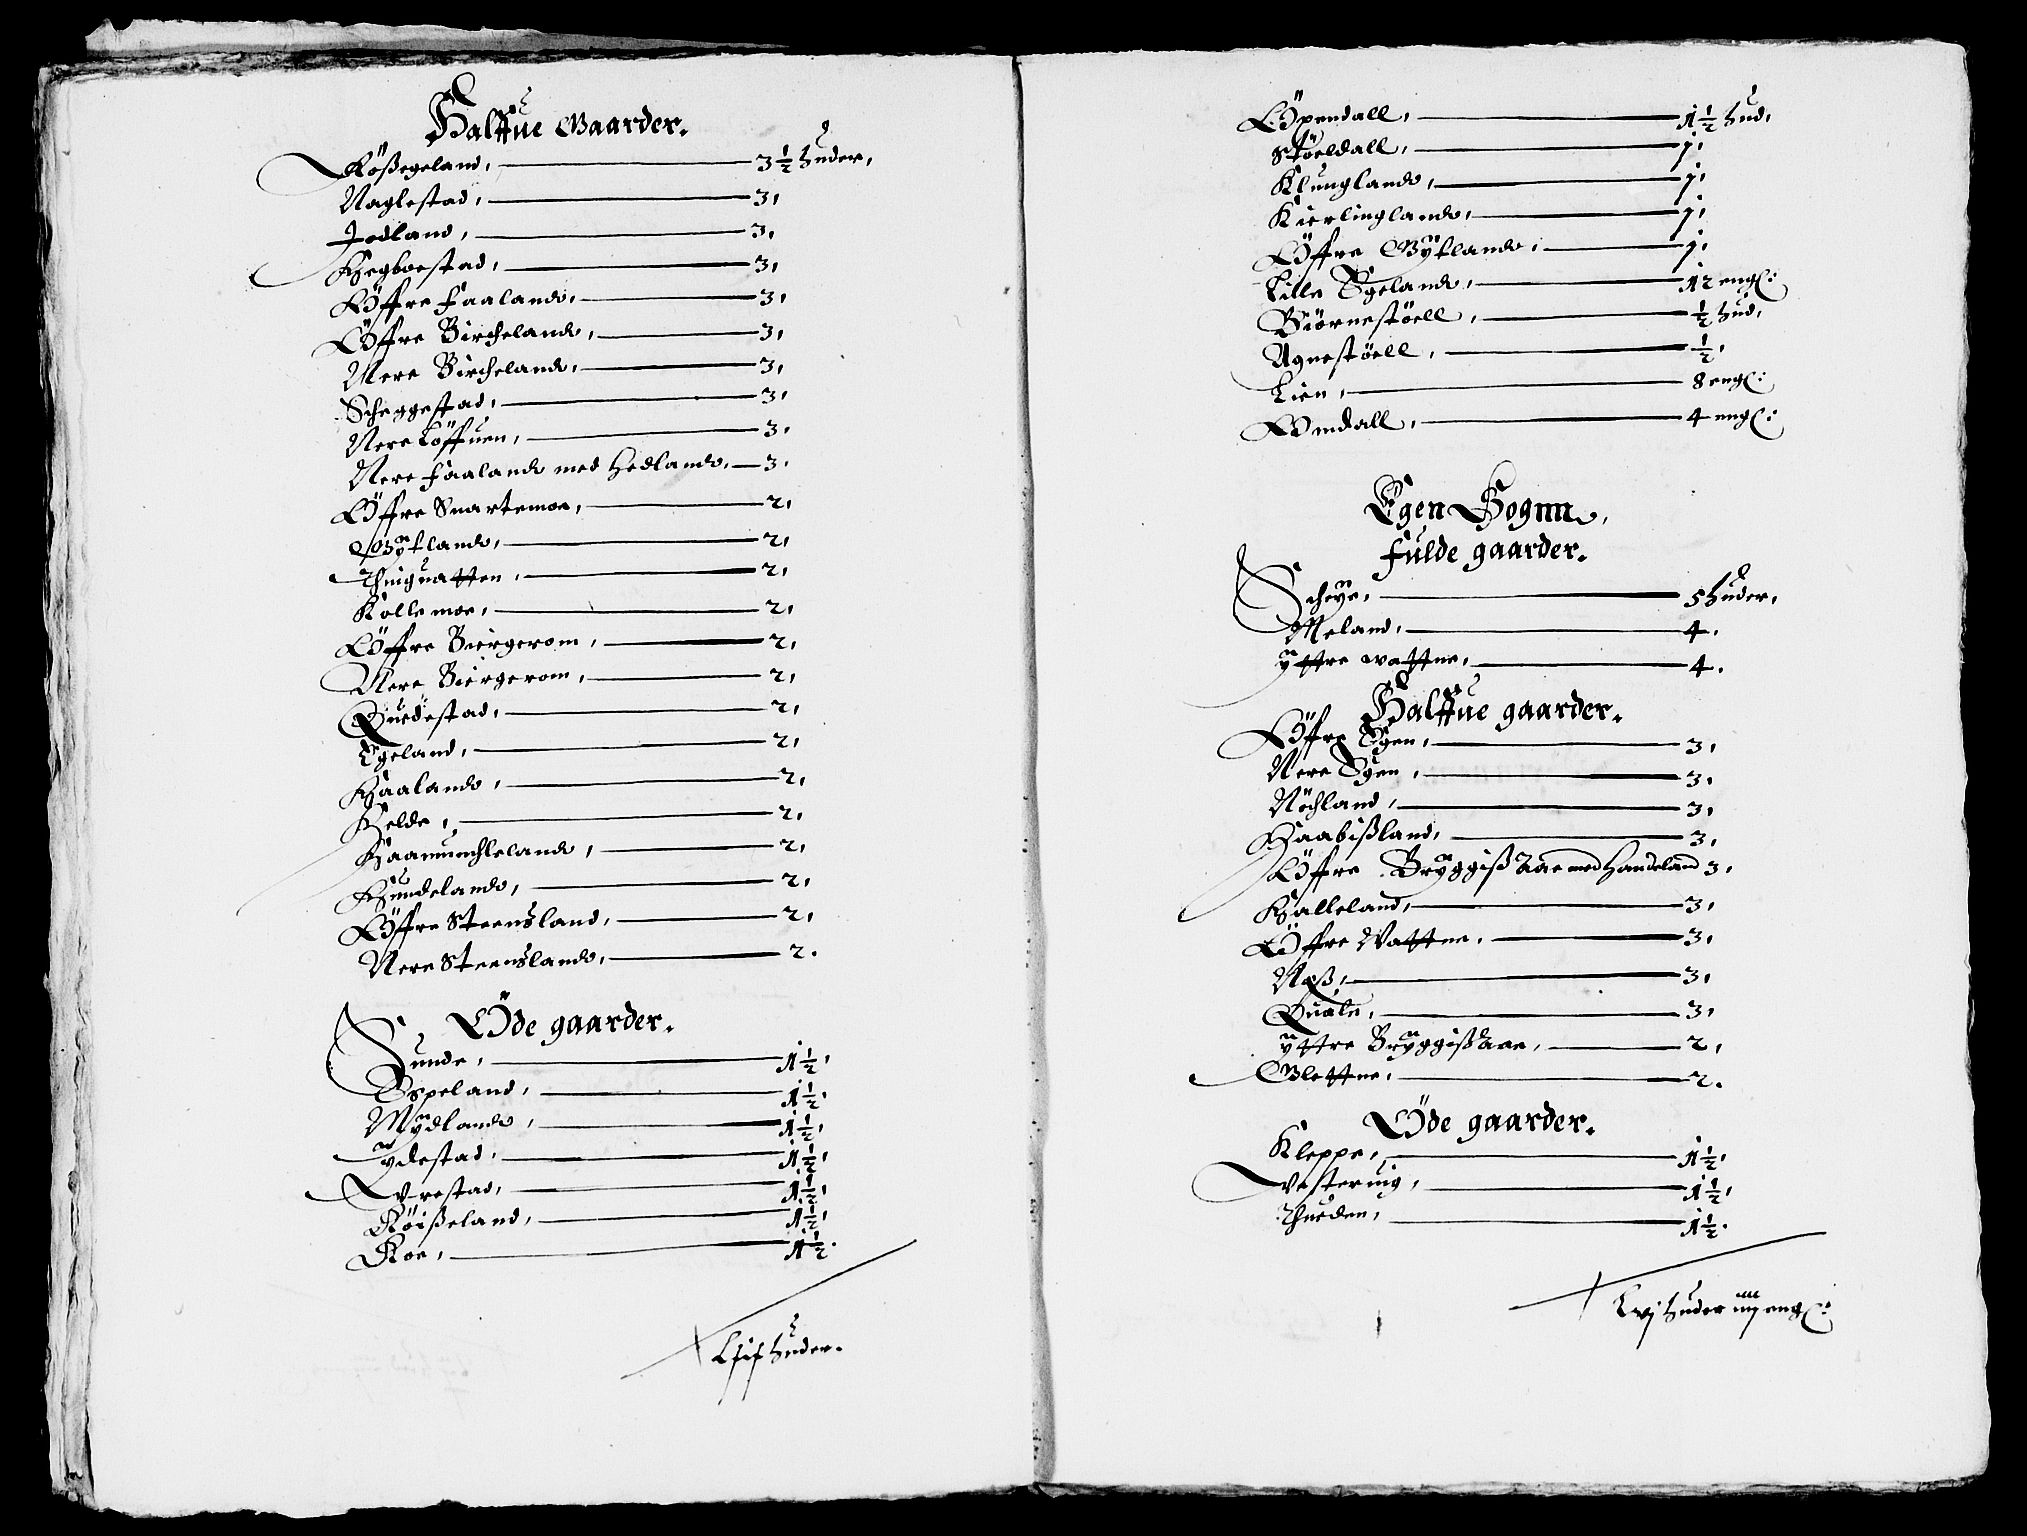 Halffue Gaarder.
Rössegeland, 3½ huder,
Naglestad, 3,
Jodland, 3,
Hegboestad, 3,
Öffre Faaland, 3,
Öffre Bircheland, 3,
Nere Bircheland, 3,
Scheggestad, 3,
Nere Löffuen, 3,
Nere Faaland med Hedland, 3,
Öffre Snartemoe, 2,
Gÿtland, 2,
Thinguatten, 2,
Kollemoe, 2,
Öffre Biergerom, 2,
Nere Biergerom, 2,
Quedestad, 2,
Egeland, 2,
Haaland, 2,
Helde, 2,
Haamunchleland, 2,
Hundeland, 2,
Öffre Steensland, 2,
Nere Steensland, 2.
Öde gaarder.
Sunde, 1½,
Espeland, 1½.
Mÿdland, 1½,
ÿdestad, 1½,
Vrestad, 1½,
Röisseland, 1½,
Roe, 1½.
Ljij huder.
Öpendall, 1½ hud,
Stöeldall, 1,
Klungland, 1,
Kierlingland, 1,
Öffre Gÿtland, 1,
Lille Egeland, 12 engl:
Biörnestöell, ½ hud,
Agnestöell, ½,
Lien, 8 engl:
Omdall, 4 engl:
Egen Sognn,
Fulde gaarder.
Scheÿe, 5 huder,
Meland, 4.
ÿttre wattne, 4.
Halffue gaarder.
Öffre Egen, 3,
Nere Egen, 3,
Nöchland, 3,
Haabissland, 3,
Öffre Brÿggissaae med Handeland 3,
Halleland, 3,
Öffre Vattne, 3,
Næss, 3,
Quale, 3,
ÿttre Brÿggissaae, 2,
Glettne, 2.
Öde gaarder.
Kleppe, 1½,
Vestering, 1½,
Thueden, 1½.
Lvj huder iiij engl: